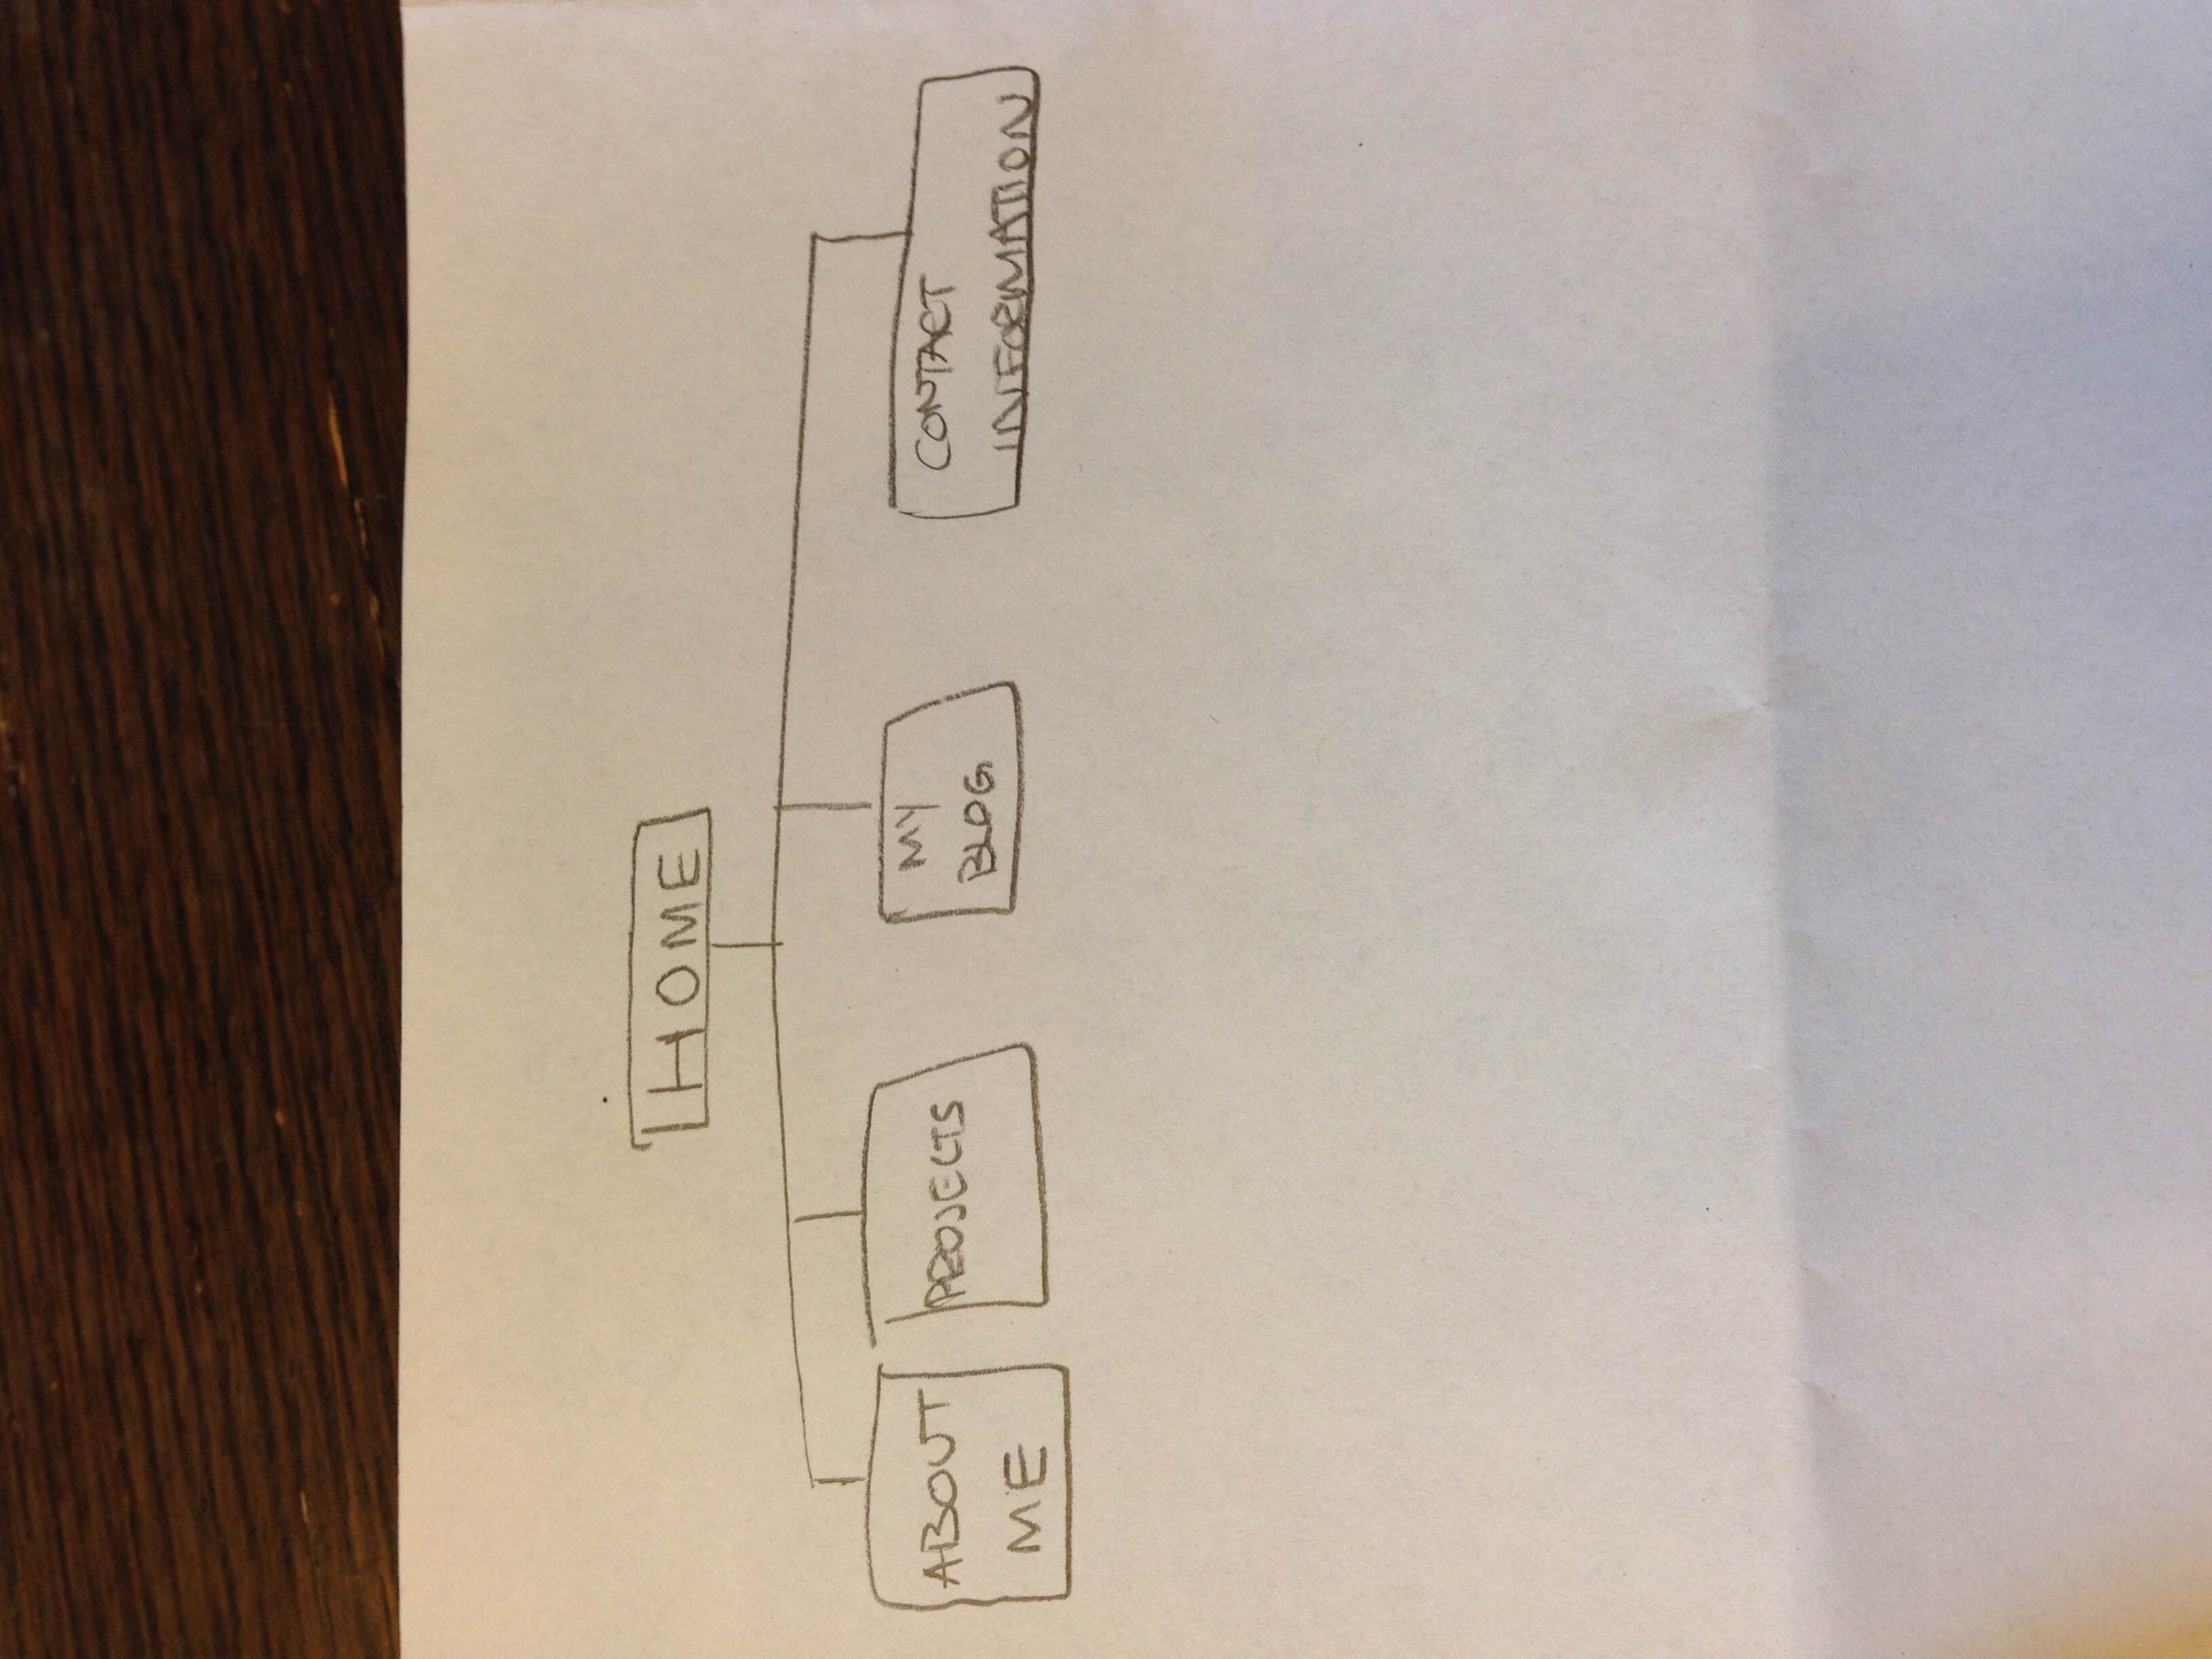 HOME
ABOUT
ME
PROJECTS
MY
BLOG
CONTACT
INFORMATION